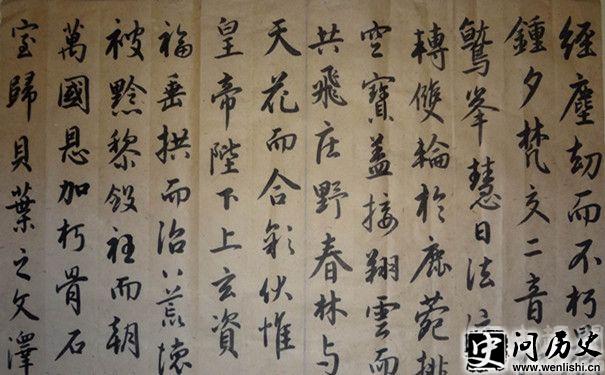 經塵劫而不朽
鍾夕梵交二音
鷲峯慧日法流
轉雙輪於鹿苑排
空寶蓋接翔雲而
共飛庄野春林与
天花而合彩伏惟
皇帝陛下上玄資
福垂拱而治八荒德
被黔黎斂衽而朝
萬國恩加朽骨石
室歸貝葉之文澤
史问历史
www.wenlishi.cn